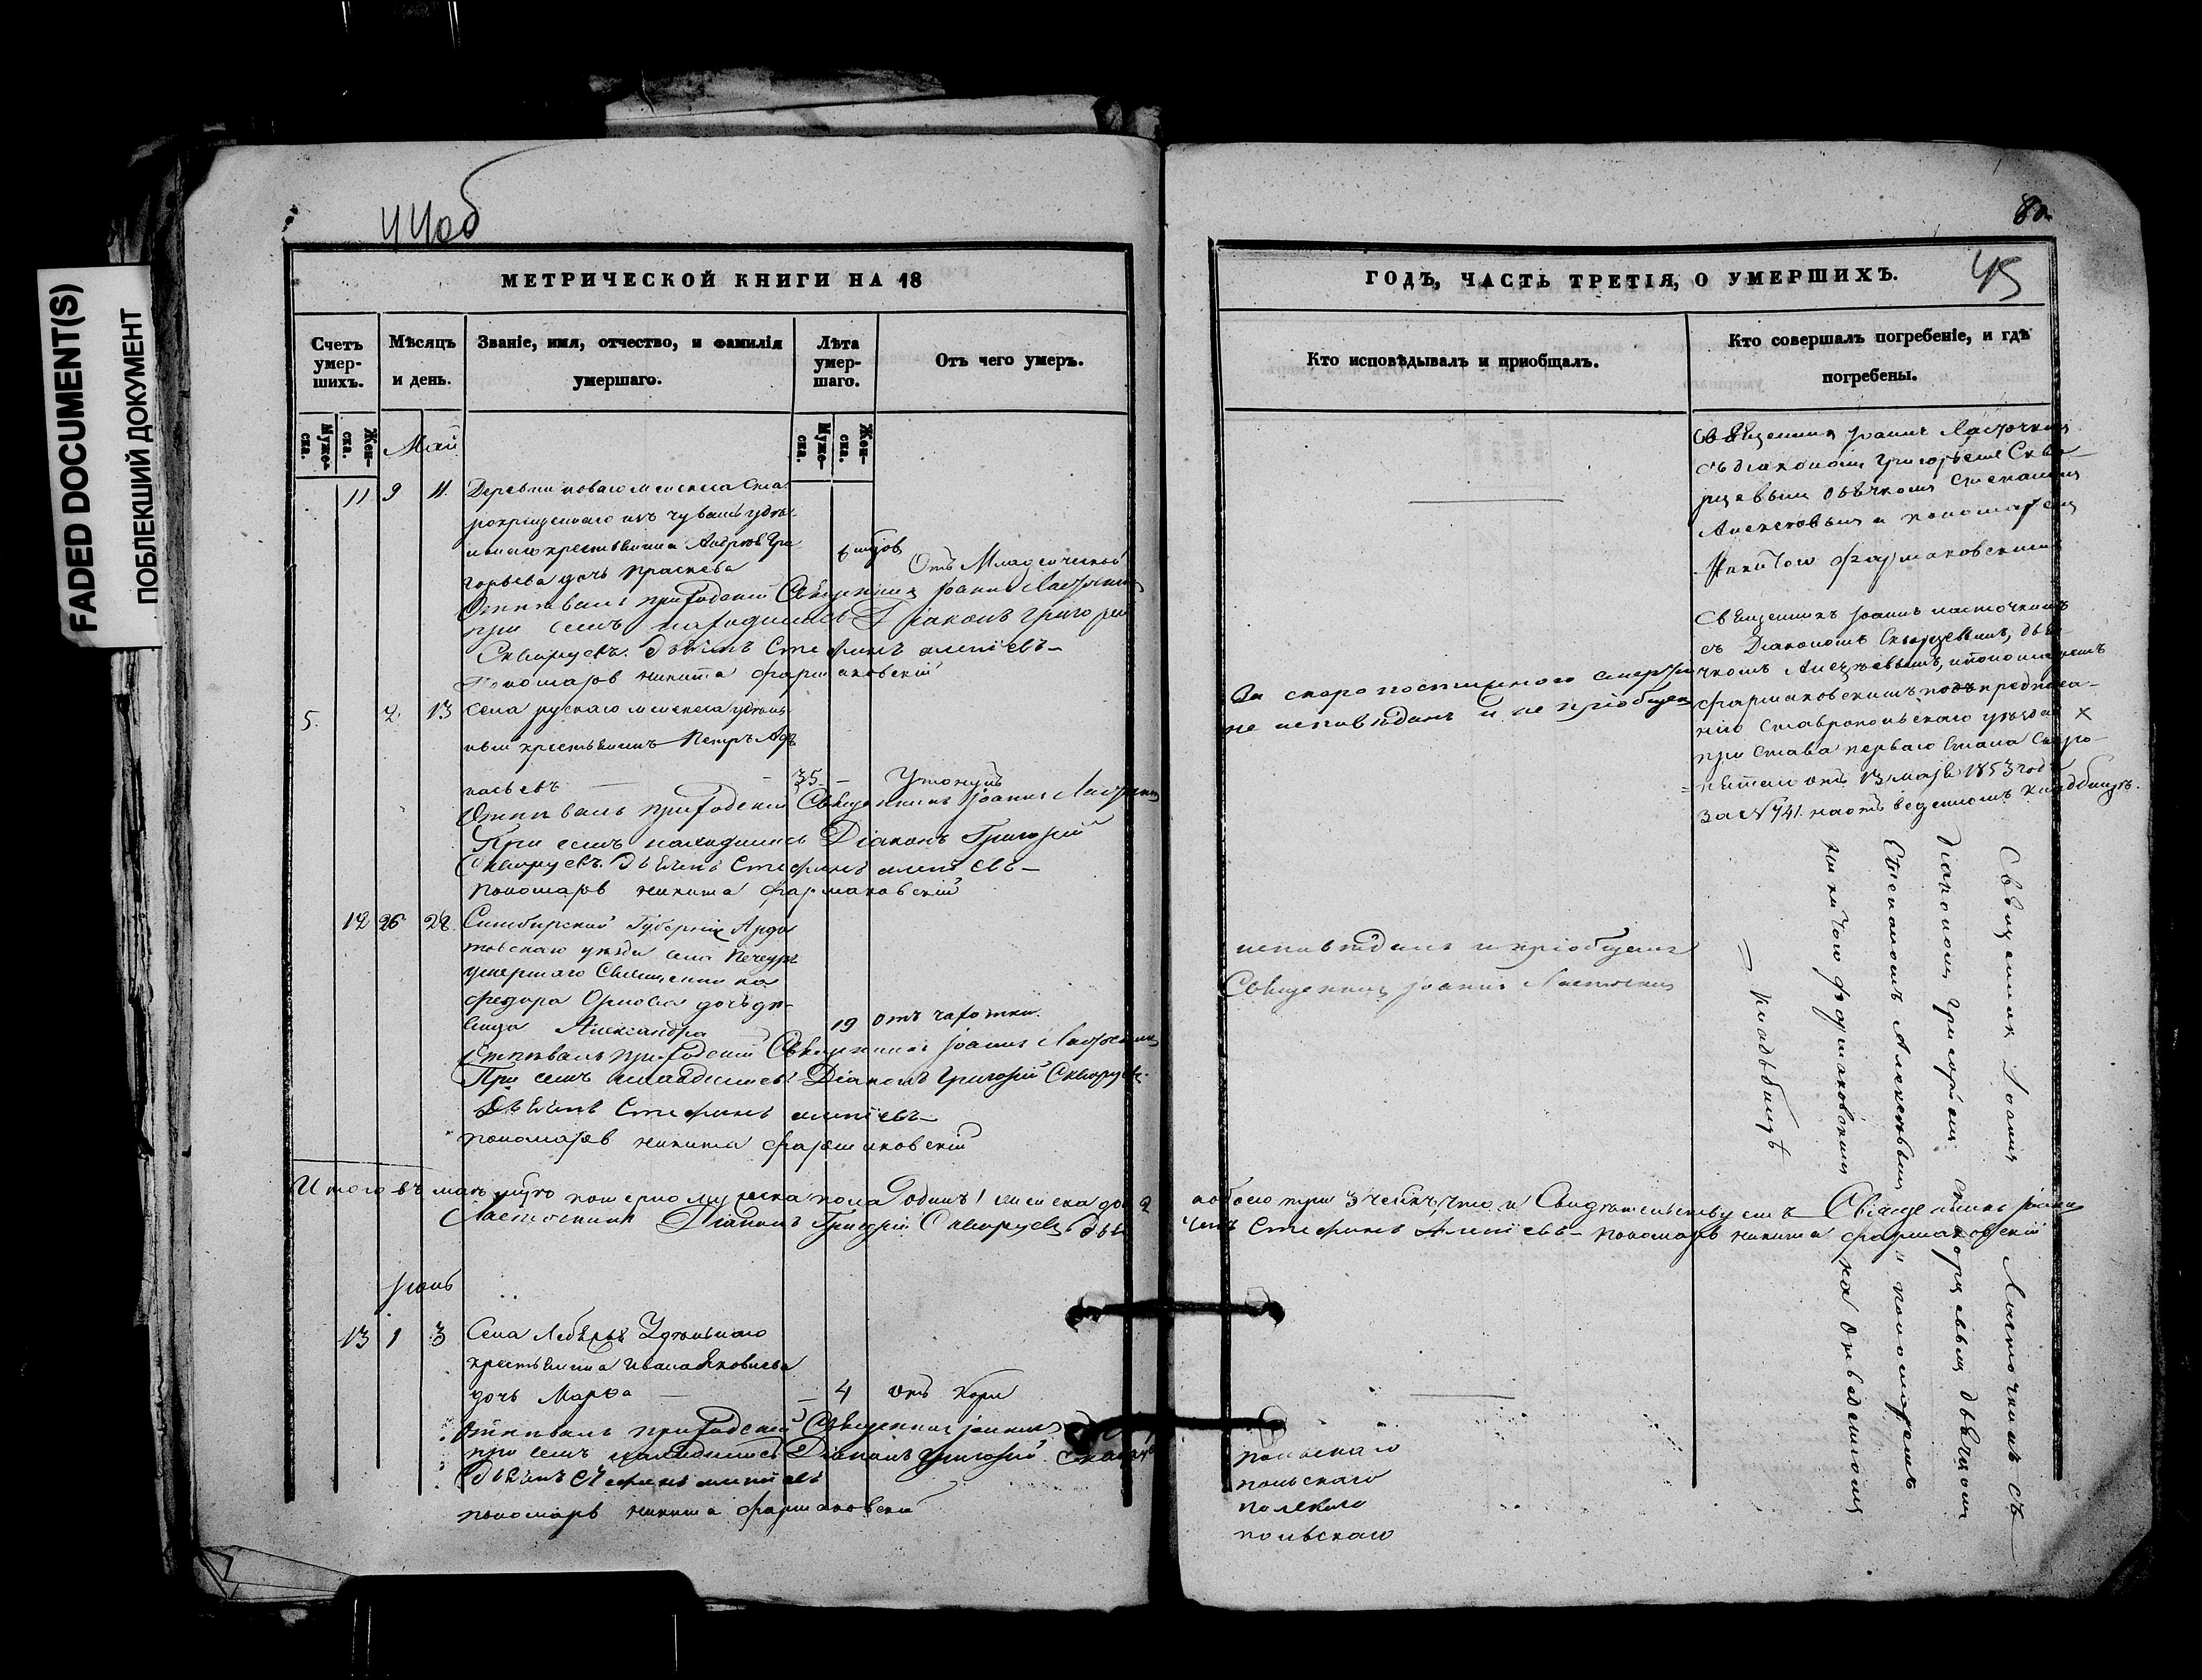 FADED DOCUMENT(S)
ПОБЛЕКШИЙ ДОКУМЕНТ
44об
МЕТРИЧЕСКОЙ КНИГИ НА 18
Счетъ умер-шихъ.
Мѣсяцъ и день.
Званіе, имя, отчество, и фамилія умершаго.
Лѣта умер-шаго.
Отъ чего умеръ.
Муже-ска.
Жен-ска.
Муже-ска.
Жен-ска.
Май
11 9 11. Деревни новаго
рокрещеннаго изъ чувашъ удѣль
наго крестьянина Андрея Гри
горьева дочь Праскева
Отъ Младенческой
Отпѣвалъ приходскій Священникъ Іоаннъ Ласточкинъ
при семъ находились Діаконъ Григорій
Скворцовъ. Дьячекъ Стефанъ Алексѣевъ
Пономарь Никита Фармаковскій
5. 2 13 Села рускаго удѣль
ный крестьянинъ Петръ Афа
насьевъ — 35 — Утонулъ
Отпѣвалъ приходскій Священникъ Іоаннъ Ласточкинъ
При семъ находились Діаконъ Григорій
Скворцовъ. Дьячекъ Стефанъ Алексѣевъ
Пономарь Никита Фармаковскій
12 26 28. Симбирской Губерніи Арда
товскаго уѣзда села
умершаго Священника
Федора Орлова дочь дѣ-
вица Александра 19 отъ чахотки.
Отпѣвалъ приходскій Священникъ Іоаннъ Ласточкинъ
При семъ находились Діаконъ Григорій Скворцовъ
Дьячекъ Стефанъ Алексѣевъ
пономарь Никита Фармаковскій
Итого въ маѣ померло мужеска пола одинъ 1 женска два 2
Ласточкинъ Діаконъ Григорій Скворцовъ Дья
Іюнь
13 1 3 Села Лебяжья Удѣльнаго
крестьянина Ивана Яковлева
дочь Марѳа — 4 отъ кори
Отпѣвалъ приходскій Священникъ Іоаннъ
при семъ находились Діаконъ Григорій
Дьячекъ Стефанъ Алексѣевъ
пономарь Никита Фармаковскій
80
45
ГОДЪ, ЧАСТЬ ТРЕТІЯ, О УМЕРШИХЪ.
Кто исповѣдывалъ и пріобщалъ.
Кто совершалъ погребеніе, и гдѣ погребены.
Священникъ Іоаннъ Ласточкинъ
съ діакономъ Григорьемъ Скво
рцовымъ дьячкомъ Степаномъ
Алексѣевымъ и пономаремъ
Никитою Фармаковскимъ
За скоропостижною смертію
не исповѣданъ и не пріобщенъ
Священникъ Іоаннъ Ласточкинъ
съ Діакономъ Скворцовымъ, дья
чкомъ Алексѣевымъ, и пономаремъ
Фармаковскимъ по предписа-
нію Ставропольскаго уѣзда
пристава перваго стана
отъ 13 мая 1853 года
за № 741. на отведенномъ кладбищѣ.
исповѣдалъ и пріобщалъ
Священникъ Іоаннъ Ласточкинъ
Священникъ Іоаннъ Ласточкинъ съ
діакономъ Григорьемъ Скворцовымъ дьячкомъ
Степаномъ Алексѣевымъ и пономаремъ
Никитою Фармаковскимъ на отведенномъ
кладбищѣ
а обоего три 3 человѣкъ, что и Свидѣтельствуемъ Священникъ Іоаннъ
чекъ Стефанъ Алексѣевъ пономарь Никита Фармаковскій
польскаго
польскаго
польскаго